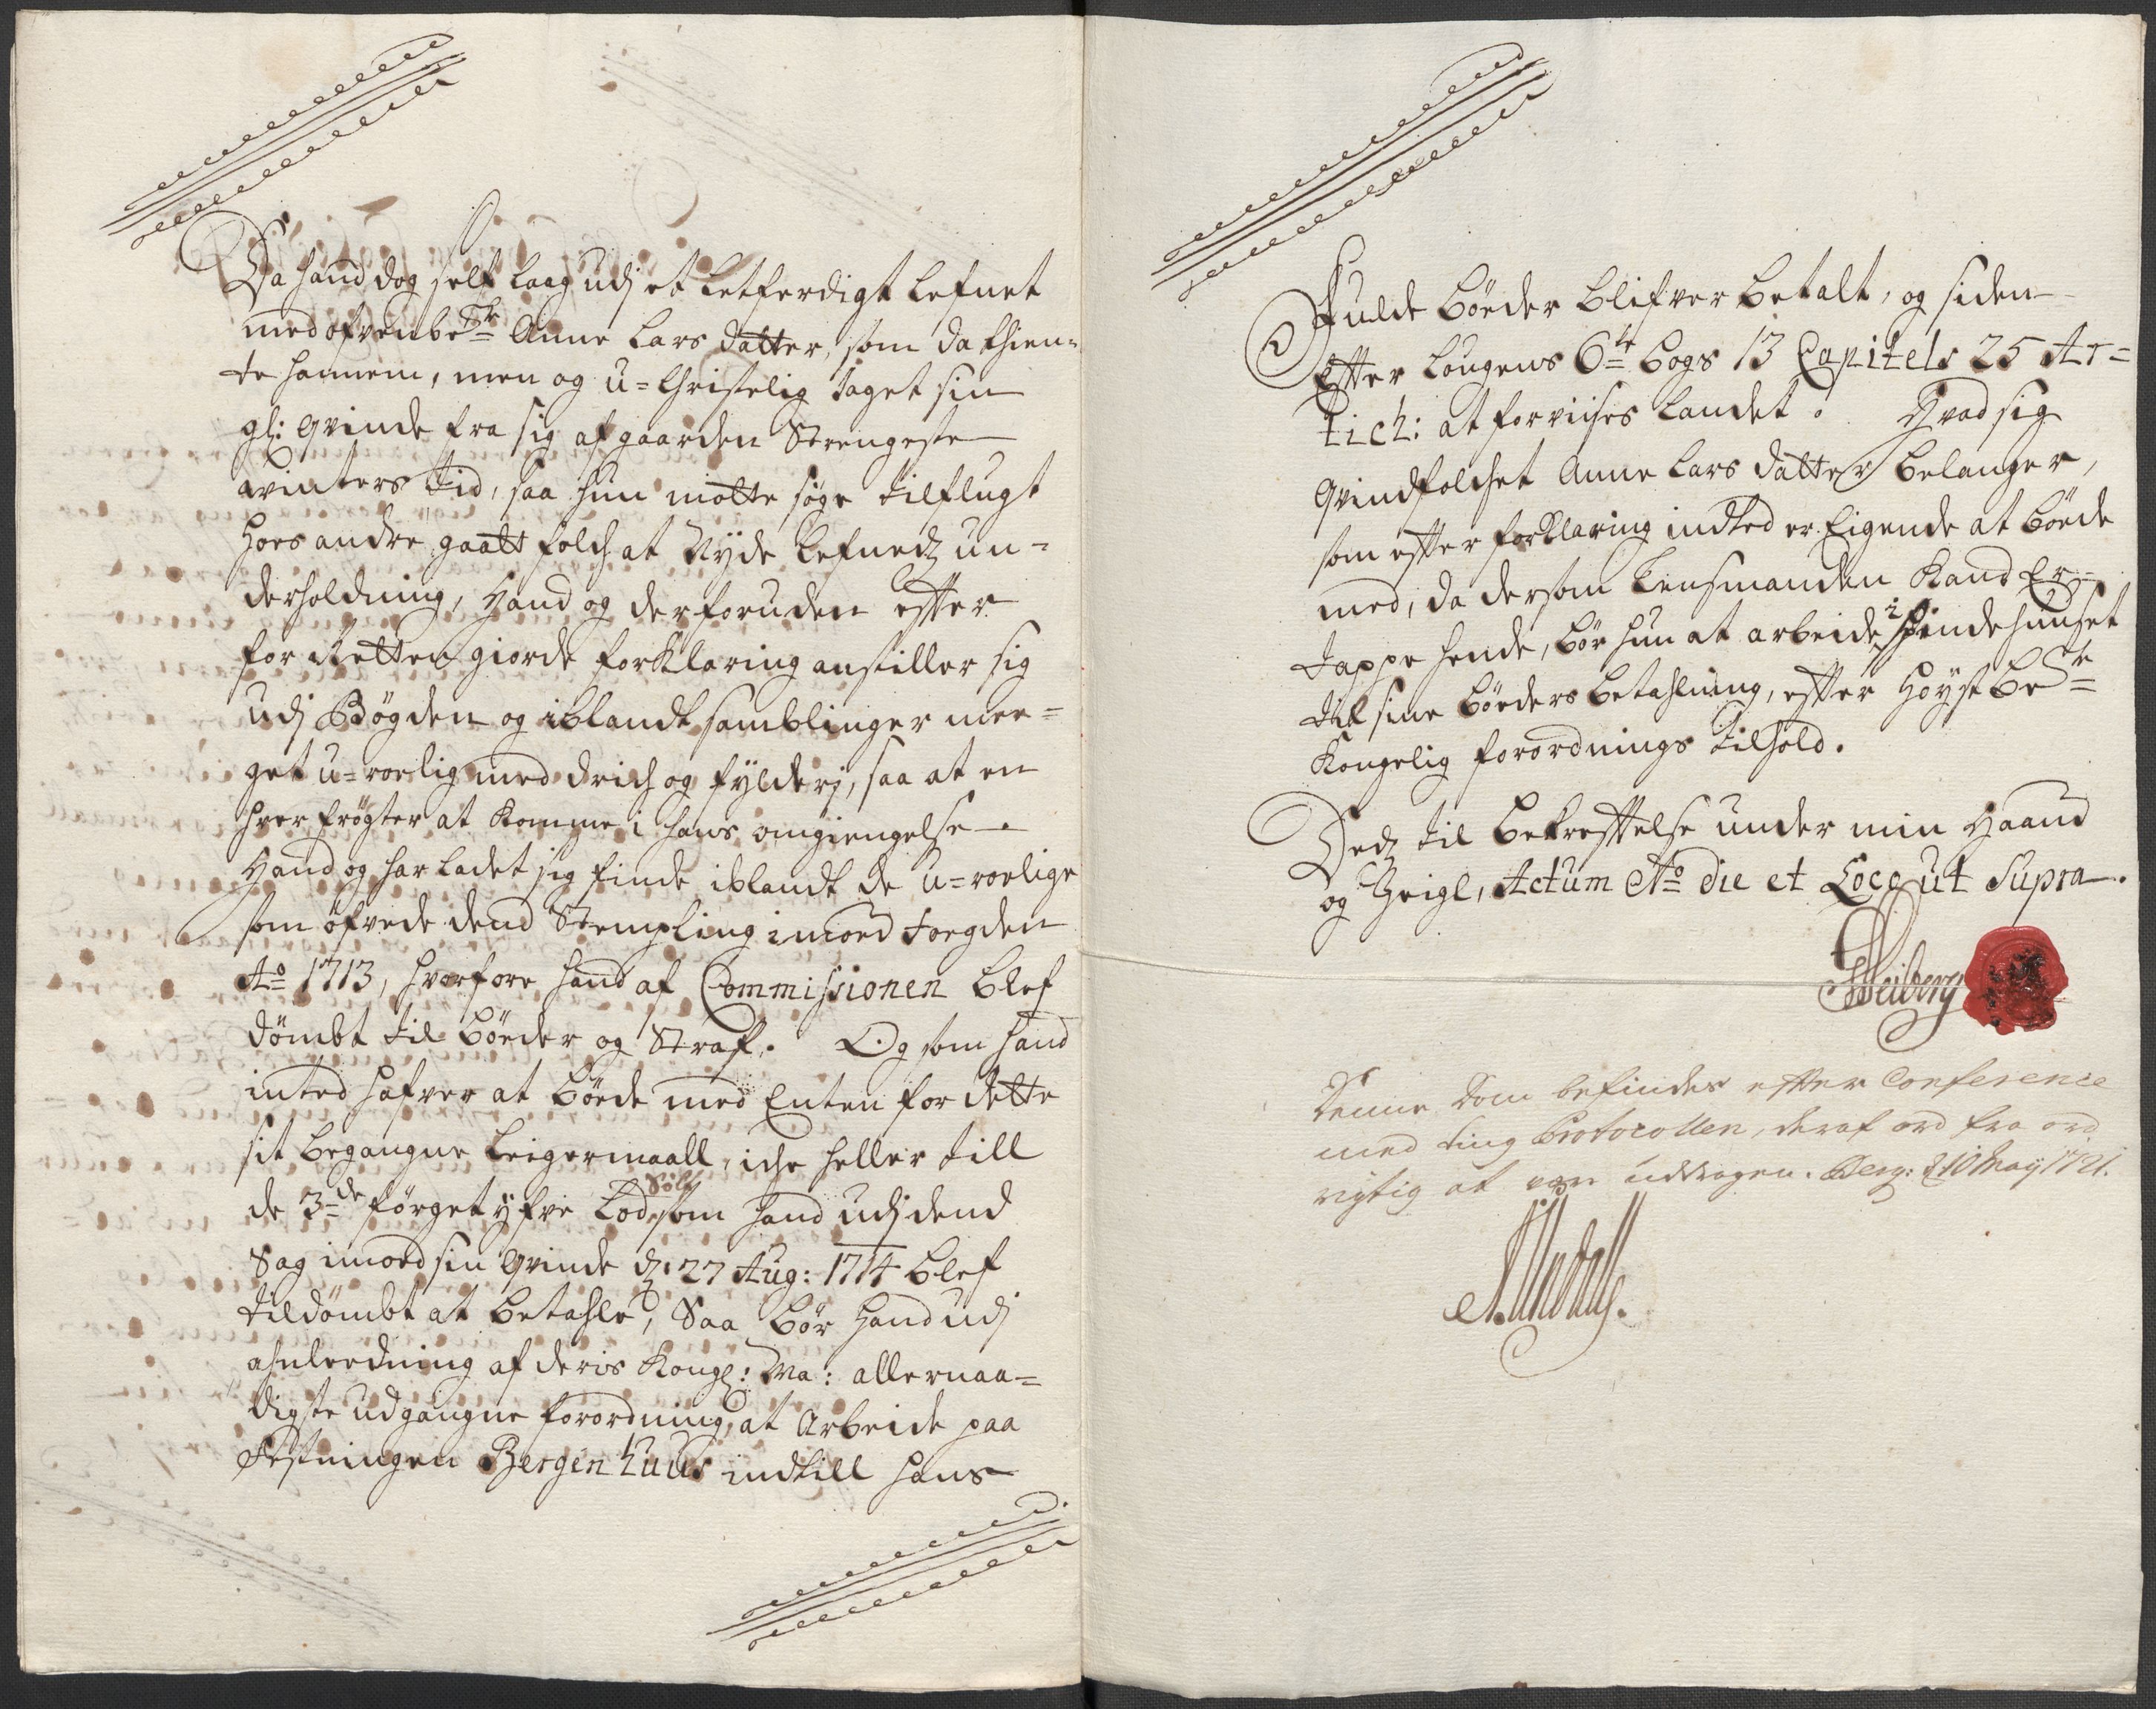 Da hand dog self laag udj et Letferdigt Lefnet
med ofvenbete Anne Lars datter, som da thien-
te hannem, men og u-Christelig Jaget sin
gl: Qvinde fra sig af gaarden Strengeste
winters tid, saa hun motte søge tilflugt
hoes andre gaatt folch at Nyde Lefnedz un-
derholdning, Hand og derforuden efter
for Retten giorde forklaring anstiller sig
udj Bøgden og iblandt samblinger mee-
get u-roelig med drich og fylderj, saa at en
hver frøgter at komme i hans omgiengelse.
Hand og har ladet sig finde iblandt de u-roelige
som øfvede dend Stempling imoed foegden
Ao 1713, hvorfore hand af Commissionen blef
dømbt til bøeder og Straf. Og som hand
inted hafver at bøede med Enten for dette
sit begangne Leigermaall, iche heller till
de 3de førgetyfve Lod Sølf som hand udj dend
Sag imoed sin Qvinde d: 27 Aug: 1714 blef
tildømbt at betahle, Saa bør Hand udj
ahnleedning af deris Kongl: Ma: allernaa-
digste udgangne forordning, at Arbeide paa
Festningen Bergenhuus indtill hans
Fulde bøeder blifver betalt, og siden
Efter Lougens 6te bogs 13 Capitels 25 Ar-
tich: at forviises Landet. Hvad sig
Qvindfolchet Anne Lars datter belanger,
som efter forklaring indted er Eigende at bøede
med, da dersom Lensmanden kand Er-
tappe hende, bør hun at arbeide i Spindehuuset
til sine bøeders betahlning, efter Høystbete
Kongelig forordnings tilhold.
Dedz til bekreftelse under min Haand
og Zeigl, Actum Ao die et Loco ut Supra.
Heiberg
Denne Dom befindes efter Conference
med ting Protocollen, deraf ord fra ord
rigtig at være uddragen. Berg: d 10 Maij 1721.